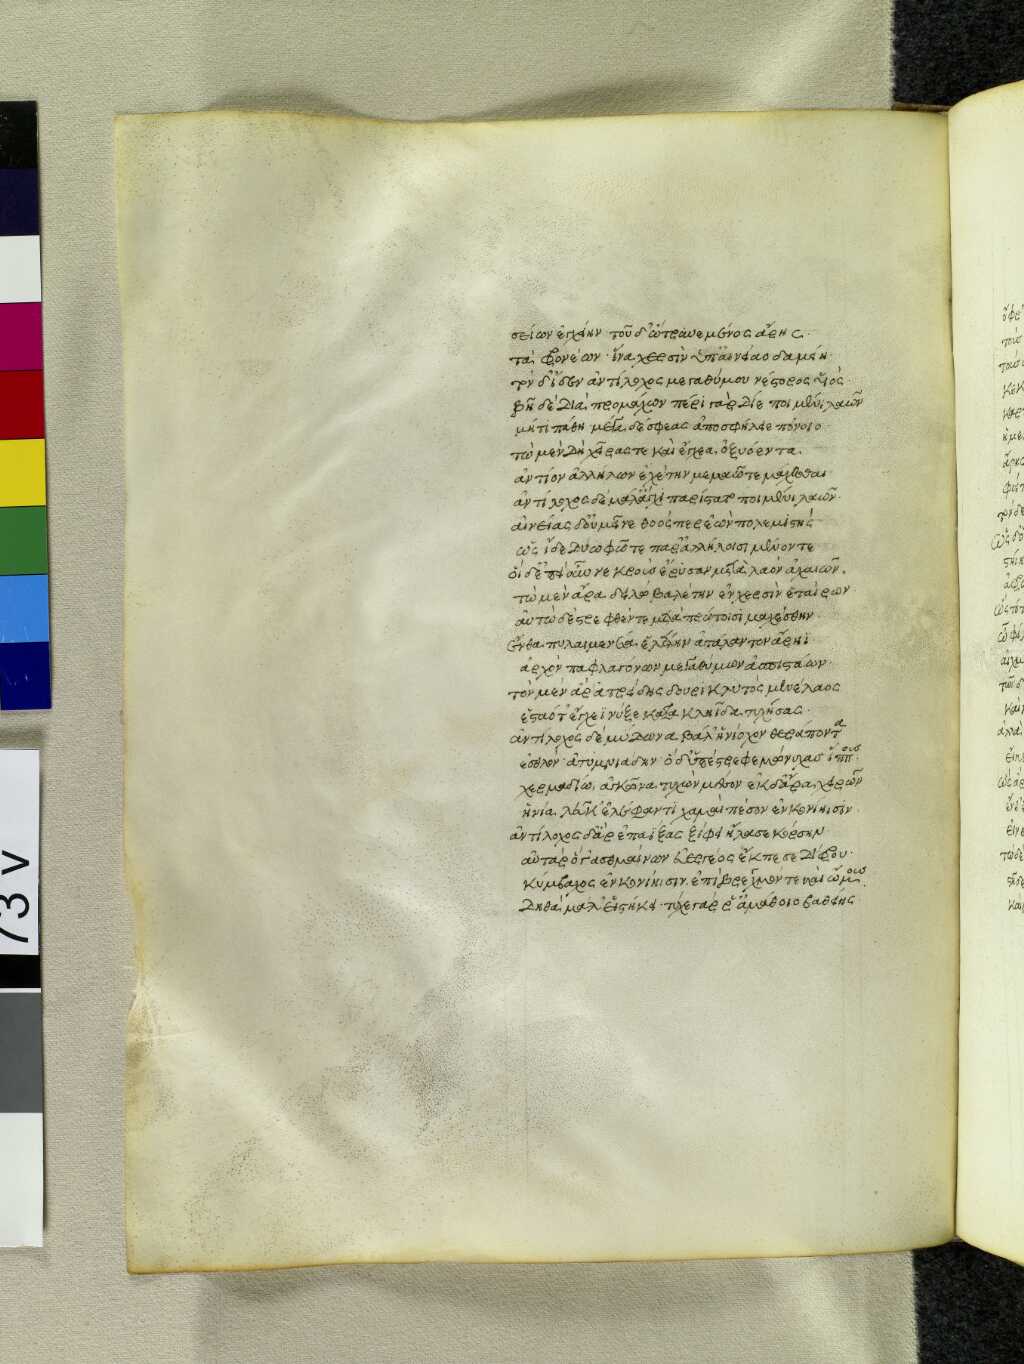 σείων ἐγχείην· τοῦ δ' ὤτρυνεμένος ἄρης·
τὰ φρονέων· ἵνα χερσὶν ὑπ' αἰνείαο δαμείη·
τὸν δ' ἴδεν ἀντίλοχος μεγαθύμου νέστορος υἱός·
βῆ δὲ διὰ προμάχων περὶ γὰρ δίε ποιμένι λαῶν
μήτι πάθη μέγα δέ σφεας ἀποσφήλειε πόνοιο
τὼ μὲν δὴ χεῖράς τε καὶ ἔγχεα ὀξυόεντα
ἀντίον ἀλλήλων ἐχέτην μεμαῶτε μάχεσθαι
ἀντίλοχος δὲ μάλ' ἄγχι παρίστατο ποιμένι λαῶν·
αἰνείας δ' οὐ μεῖνε θοός περ ἐὼν πολεμιστής
ὡς ἴδε δύω φῶτε παρ' ἀλλήλοισι μένοντε
οἱ δ' ἐπεὶ οὖν νεκροὺς ἔρυσαν μετὰ λαὸν ἀχαιῶν.
τὼ μὲν ἄρα δειλὼ βαλέτην ἐν χερσὶν ἑταίρων·
αὐτὼ δὲ στρεφθέντε μετὰ πρώτοισι μαχέσθην·
ἔνθα πυλαιμένεα ἑλέτην ἀτάλαντον ἄρηϊ·
ἀρχὸν παφλαγόνων μεγαθύμων ἀσπιστάων·
τὸν μὲν ἄρ' ἀτρείδης δουρὶ κλυτὸς μενέλαος
ἑσταότ' ἔγχεϊ νύξε κατὰ κληῖδα τυχήσας·
ἀντίλοχος δὲ μύδωνα βάλ' ἡνίοχον θεράποντα
ἐσθλὸν ἀτυμνιάδην· ὁ δ' ὑπέστρεφε μώνυχας ἵππους·
χερμαδίω ἀγκῶνα τυχὼν μέσον ἐκ δ' ἄρα χειρῶν
ἡνία λεύκ' ἐλέφαντι χαμαὶ πέσον ἐν κονίηισιν·
ἀντίλοχος δ' ἄρ' ἐπαΐξας ξίφει ἤλασε κόρσην
αὐτὰρ ὅ γ' ἀσθμαίνων εὐεργέος ἔκπεσε δίφρου·
κύμβαχος ἐν κονίηισιν ἐπὶ βρεχμόν τε καὶ ὤμους·
δηθὰ μάλ' εἱστήκει· τύχε γάρ ῥ' ἀμάθοιο βαθείης